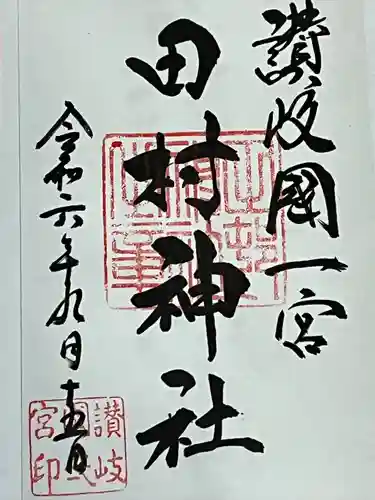 讃岐國一宮
田村神社
令和六年九月十五日
讃岐
宮印